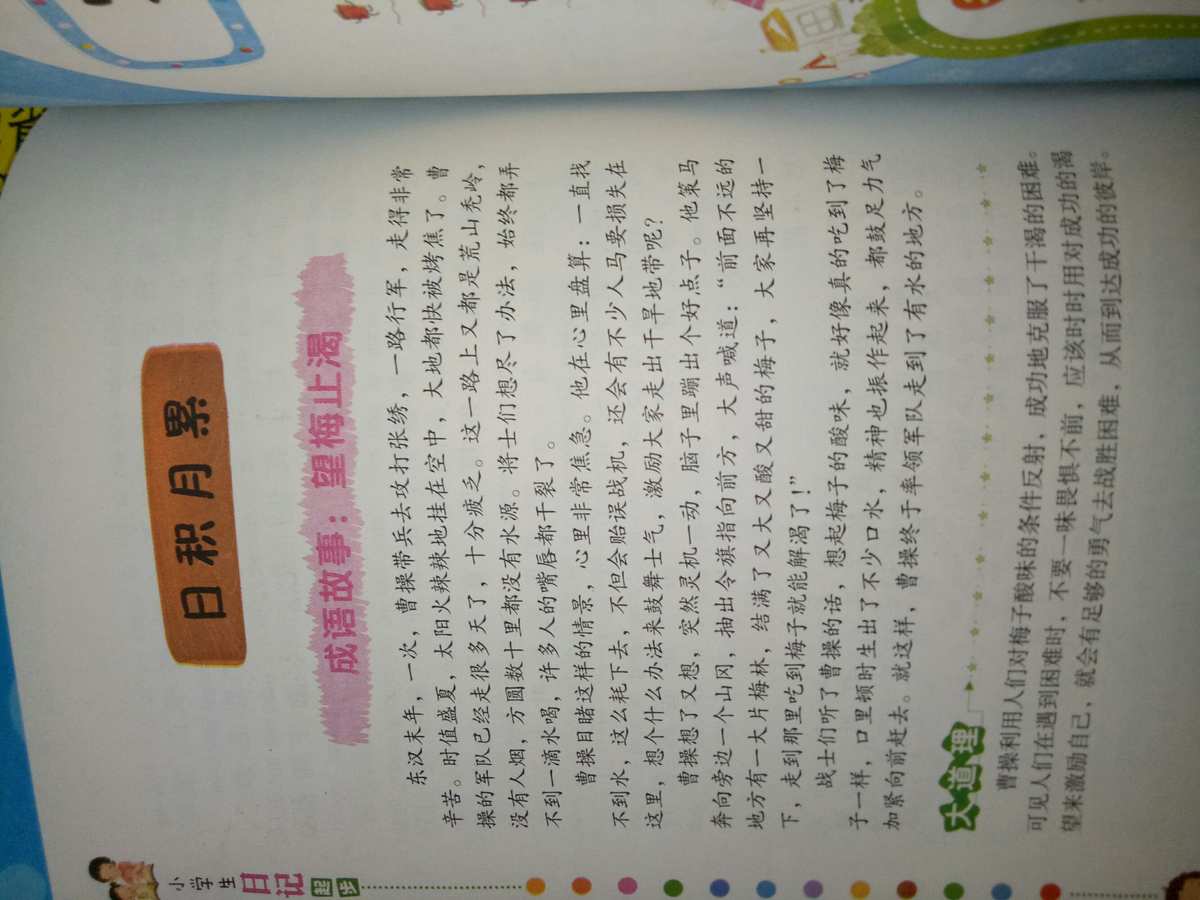 小学生
日记
起步
日积月累
成语故事：望梅止渴
东汉末年，一次，曹操带兵去攻打张绣，一路行军，走得非常
辛苦。时值盛夏，太阳火辣辣地挂在空中，大地都快被烤焦了。曹
操的军队已经走很多天了，十分疲乏。这一路上又都是荒山秃岭，
没有人烟，方圆数十里都没有水源。将士们想尽了办法，始终都弄
不到一滴水喝，许多人的嘴唇都干裂了。
曹操目睹这样的情景，心里非常焦急。他在心里盘算：一直找
不到水，这么耗下去，不但会贻误战机，还会有不少人马要损失在
这里，想个什么办法来鼓舞士气，激励大家走出干旱地带呢？
曹操想了又想，突然灵机一动，脑子里蹦出个好点子。他策马
奔向旁边一个山冈，抽出令旗指向前方，大声喊道：“前面不远的
地方有一大片梅林，结满了又大又酸又甜的梅子，大家再坚持一
下，走到那里吃到梅子就能解渴了！”
战士们听了曹操的话，想起梅子的酸味，就好像真的吃到了梅
子一样，口里顿时生出了不少口水，精神也振作起来，都鼓足力气
加紧向前赶去。就这样，曹操终于率领军队走到了有水的地方。
大道理
曹操利用人们对梅子酸味的条件反射，成功地克服了干渴的困难。
可见人们在遇到困难时，不要一味畏惧不前，应该时时用对成功的渴
望来激励自己，就会有足够的勇气去战胜困难，从而到达成功的彼岸。